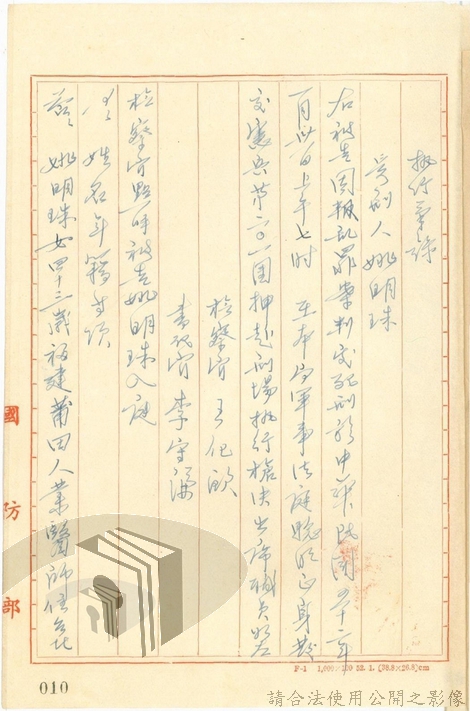 執行筆錄
受刑人 姚明珠
右被告因叛亂罪案判處死刑於中華民國五十二年
一月廿一日上午七時 在本局軍事法庭驗明正身發
交憲兵第二〇一團押赴刑場執行槍決出席職員如左
檢察官 王
書記官 李守
檢察官點呼被告姚明珠入庭
問 姓名年籍等項
答 姚明珠女四十三歲福建莆田人業醫師住台北
國防部
F-1 1,000×100 52. 1.
010
請合法使用公開之影像